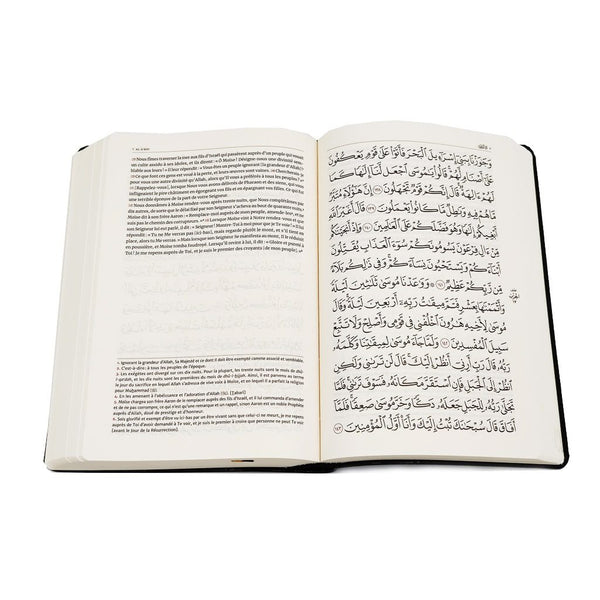 7. AL-A'RAF
Nous fîmes traverser la mer aux fils d'Israël qui passèrent auprès d'un peuple qui vouait
un culte assidu à ses idoles, et ils dirent : « Ô Moïse ! Désigne-nous une divinité
semblable aux leurs ! » Il leur répondit : « Vous êtes un peuple ignorant
Ce que font ces gens est voué à la perte, et leurs œuvres sont vaines.
pour vous une autre divinité qu'Allah, alors qu'Il vous a
[Rappelez-vous], lorsque Nous vous avons délivrés de Pharaon et des siens, qui vous
égorgeant vos fils et en épargnant vos filles. Ce fut
une terrible épreuve de la part de votre Seigneur.
dix autres, de sorte que le
dit alors à son frère Aaron : « Remplace-moi auprès de mon peuple,
pas le chemin des corrupteurs. » Lorsque Moïse vint à Notre rendez-vous et que
son Seigneur lui eut parlé, il dit : « Seigneur ! Montre-Toi à moi
répondit : « Tu ne Me verras pas [ici-bas], mais regarde plutôt le mont, et s'il tient en
place, alors tu Me verras. » Mais lorsque son Seigneur se manifesta au mont, Il le réduisit
en poussière, et Moïse tomba foudroyé. Lorsqu'il revint à lui, il dit : « Gloire et pureté à
Toi ! Je me repens auprès de Toi, et je suis le premier des croyants [de mon peuple].
1. Ignorant la grandeur d'Allah, Sa Majesté et ce dont Il doit être exempté comme associé et semblable.
2. C'est-à-dire : à tous les peuples de l'époque.
3. Les exégètes ont divergé sur ces dix nuits. Pour la plupart, les trente nuits sont le mois de dhû-l-
qa'dah, et les dix nuits sont les premières du mois de dhû-l-hijjah. Ainsi, il est parvenu au terme
le même mois au cours duquel Allah s'adressa de vive voix à Moïse, et en lequel Il a parfait la religion
pour Muhammad
4. En les amenant à l'obéissance et l'adoration d'Allah
de ne pas corrompre, ce qui n'est qu'une remarque et un rappel, sinon Aaron est un noble Prophète
auprès d'Allah, doué de prestige et d'honneur.
de Toi d'avoir demandé à Te voir, et je suis le premier à croire que personne ne peut Te voir
[avant le Jour de la Résurrection].
وَجَٰوَزْنَا بِبَنِىٓ إِسْرَٰٓءِيلَ ٱلْبَحْرَ فَأَتَوْا۟ عَلَىٰ قَوْمٍ يَعْكُفُونَ
عَلَىٰٓ أَصْنَامٍ لَّهُمْ قَالُوا۟ يَٰمُوسَى ٱجْعَل لَّنَآ إِلَٰهًا كَمَا
لَهُمْ ءَالِهَةٌ قَالَ إِنَّكُمْ قَوْمٌ تَجْهَلُونَ ١٣٨ إِنَّ هَٰٓؤُلَآءِ مُتَبَّرٌ
مَّا هُمْ فِيهِ وَبَٰطِلٌ مَّا كَانُوا۟ يَعْمَلُونَ ١٣٩ قَالَ أَغَيْرَ ٱللَّهِ
أَبْغِيكُمْ إِلَٰهًا وَهُوَ فَضَّلَكُمْ عَلَى ٱلْعَٰلَمِينَ ١٤٠ وَإِذْ أَنجَيْنَٰكُم
مِّنْ ءَالِ فِرْعَوْنَ يَسُومُونَكُمْ سُوٓءَ ٱلْعَذَابِ يُقَتِّلُونَ
أَبْنَآءَكُمْ وَيَسْتَحْيُونَ نِسَآءَكُمْ وَفِى ذَٰلِكُم بَلَآءٌ
مِّن رَّبِّكُمْ عَظِيمٌ ١٤١ وَوَٰعَدْنَا مُوسَىٰ ثَلَٰثِينَ لَيْلَةً
وَأَتْمَمْنَٰهَا بِعَشْرٍ فَتَمَّ مِيقَٰتُ رَبِّهِۦٓ أَرْبَعِينَ لَيْلَةً وَقَالَ
مُوسَىٰ لِأَخِيهِ هَٰرُونَ ٱخْلُفْنِى فِى قَوْمِى وَأَصْلِحْ وَلَا تَتَّبِعْ
سَبِيلَ ٱلْمُفْسِدِينَ ١٤٢ وَلَمَّا جَآءَ مُوسَىٰ لِمِيقَٰتِنَا وَكَلَّمَهُۥ
رَبُّهُۥ قَالَ رَبِّ أَرِنِىٓ أَنظُرْ إِلَيْكَ قَالَ لَن تَرَىٰنِى وَلَٰكِنِ
ٱنظُرْ إِلَى ٱلْجَبَلِ فَإِنِ ٱسْتَقَرَّ مَكَانَهُۥ فَسَوْفَ تَرَىٰنِى فَلَمَّا
تَجَلَّىٰ رَبُّهُۥ لِلْجَبَلِ جَعَلَهُۥ دَكًّا وَخَرَّ مُوسَىٰ صَعِقًا فَلَمَّآ
أَفَاقَ قَالَ سُبْحَٰنَكَ تُبْتُ إِلَيْكَ وَأَنَا۠ أَوَّلُ ٱلْمُؤْمِنِينَ ١٤٣